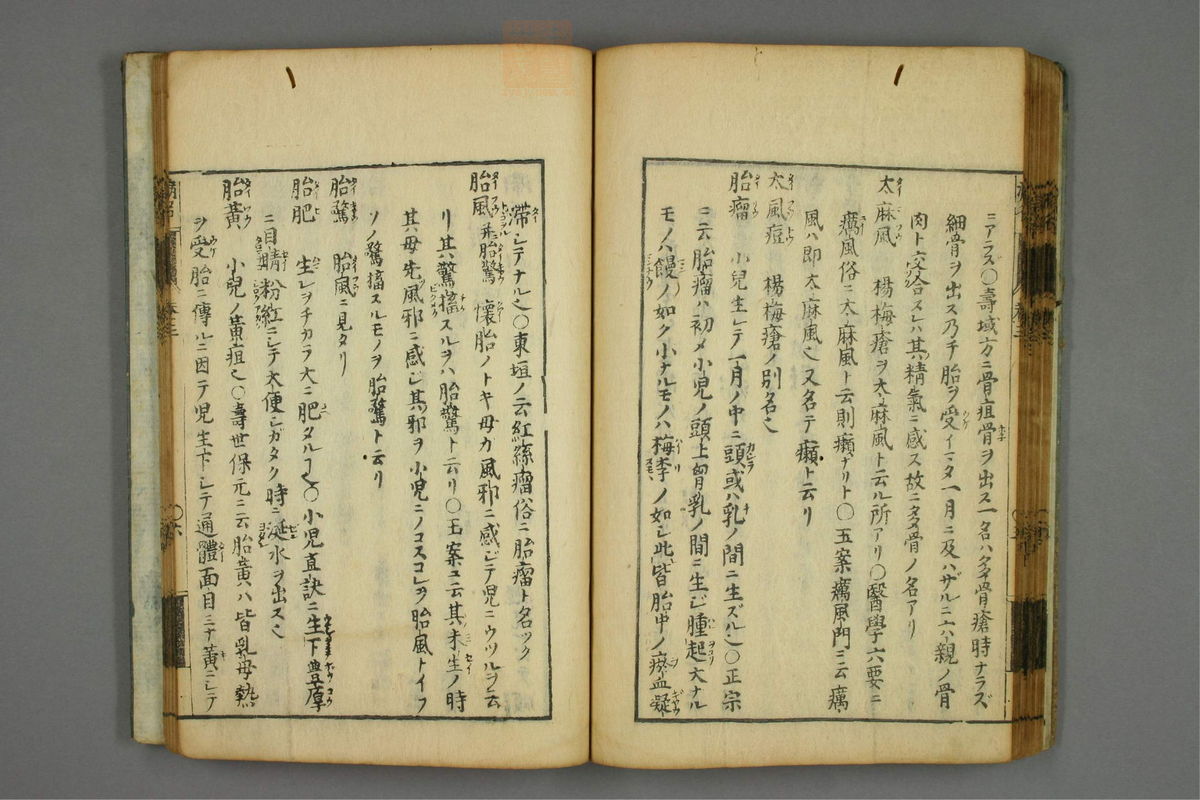 ニアラズ○壽域方ニ骨疽骨ヲ出ス一名ハタヽ骨瘡時ナラズ
細骨ヲ出ス乃チ胎ヲ受イマタ一月ニ及ハザルニ六親ノ骨
肉ト交合スレハ其精氣ニ感ス故ニタヽ骨ノ名アリ
太麻風 楊梅瘡ヲ太麻風ト云ル所アリ○醫學六要ニ
癘風俗ニ太麻風ト云則癩ナリト○玉案癘風門ニ云癘
風ハ即太麻風也又名テ癩ト云リ
太風痘 楊梅瘡ノ別名也
胎瘤 小兒生レテ一月ノ中ニ頭或ハ乳ノ間ニ生ズル也○正宗
ニ云胎瘤ハ初メ小児ノ頭上胷乳ノ間ニ生ジ腫起大ナル
モノハ饅ノ如ク小ナルモノハ梅李ノ如シ此皆胎中ノ瘀血凝
滞シテナル也○東垣ノ云紅絲瘤俗ニ胎瘤ト名ツク
胎風并胎驚 懷胎ノトキ母カ風邪ニ感ジテ児ニウツルヲ云
リ其驚搐スルヲハ胎驚ト云リ○玉案ニ云其未生ノ時
其母先風邪ニ感ジ其邪ヲ小児ニノコスコレヲ胎風トイフ
ソノ驚搐スルモノヲ胎驚ト云リ
胎驚 胎風ニ見タリ
胎肥 生レヲチカラ大ニ肥タルヿ也○小児直訣ニ生下豊厚
ニ目睛粉紅ニシテ大便シガタク時ニ涎水ヲ出ス也
胎黃 小兒ノ黄疸也○壽世保元ニ云胎黄ハ皆乳母熱
ヲ受胎ニ傳ルニ因テ児生下シテ通體面目ミナ黃ニシテ